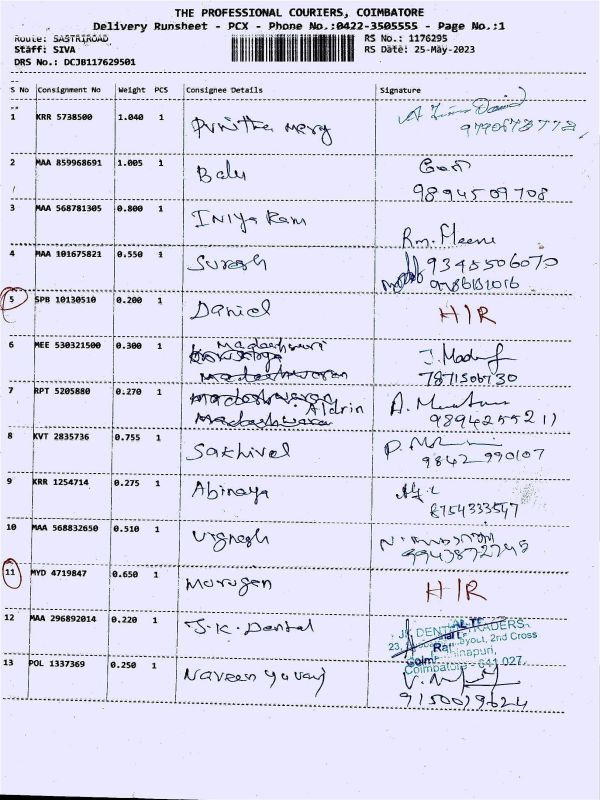 THE PROFESSIONAL COURIERS, COIMBATORE
Delivery Runsheet - PCX - Phone No.:0422-3505555 - Page No.:1
Route: SASTRIROAD RS No.: 1176295
Staff: SIVA RS Date: 25-May-2023
DRS No.: DCJB117629501
S No Consignment No Weight PCS Consignee Details Signature
1 KRR 5738500 1.040 1 Punitha mery
2 MAA 859968691 1.005 1 Balu
9894509708
3 MAA 568781305 0.800 1 Iniya Ram
Rm. Meena
4 MAA 101675821 0.550 1 Suresh 9345506070
5 SPB 10130510 0.200 1 Daniel H/R
6 MEE 530321500 0.300 1 Madheshwaran
7871506730
7 RPT 5205880 0.270 1 Aldrin
9894255211
8 KVT 2835736 0.755 1 Sakhivel
9842 990107
9 KRR 1254714 0.275 1 Abinaya
8754333547
10 MAA 568832650 0.510 1 Vignesh
9943872745
11 MYD 4719847 0.650 1 Murugan H/R
12 MAA 296892014 0.220 1 J.K. Dental JK DENTAL TRADERS
2nd Cross
Coimbatore - 641 027.
13 POL 1337369 0.250 1 Naveen yuvaraj
9150029624